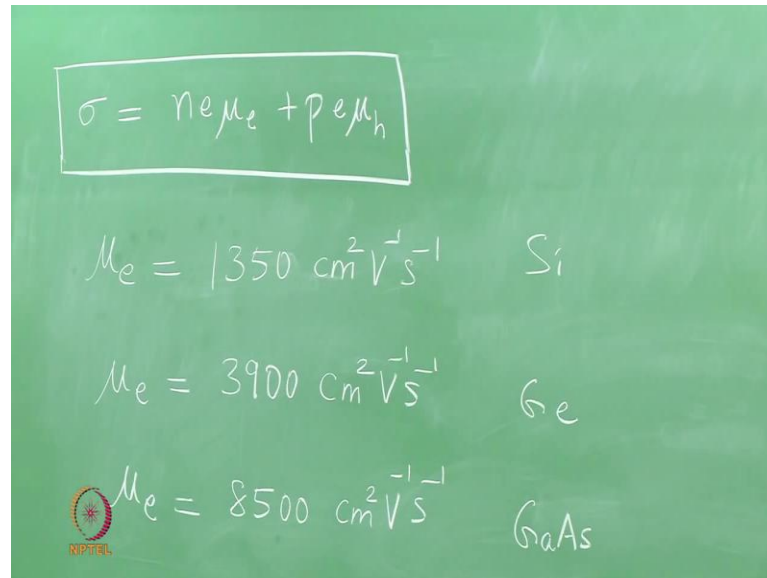 σ = neμₑ + peμₕ
μₑ = 1350 cm² V⁻¹ s⁻¹ Si
μₑ = 3900 cm² V⁻¹ s⁻¹ Ge
μₑ = 8500 cm² V⁻¹ s⁻¹ GaAs
NPTEL